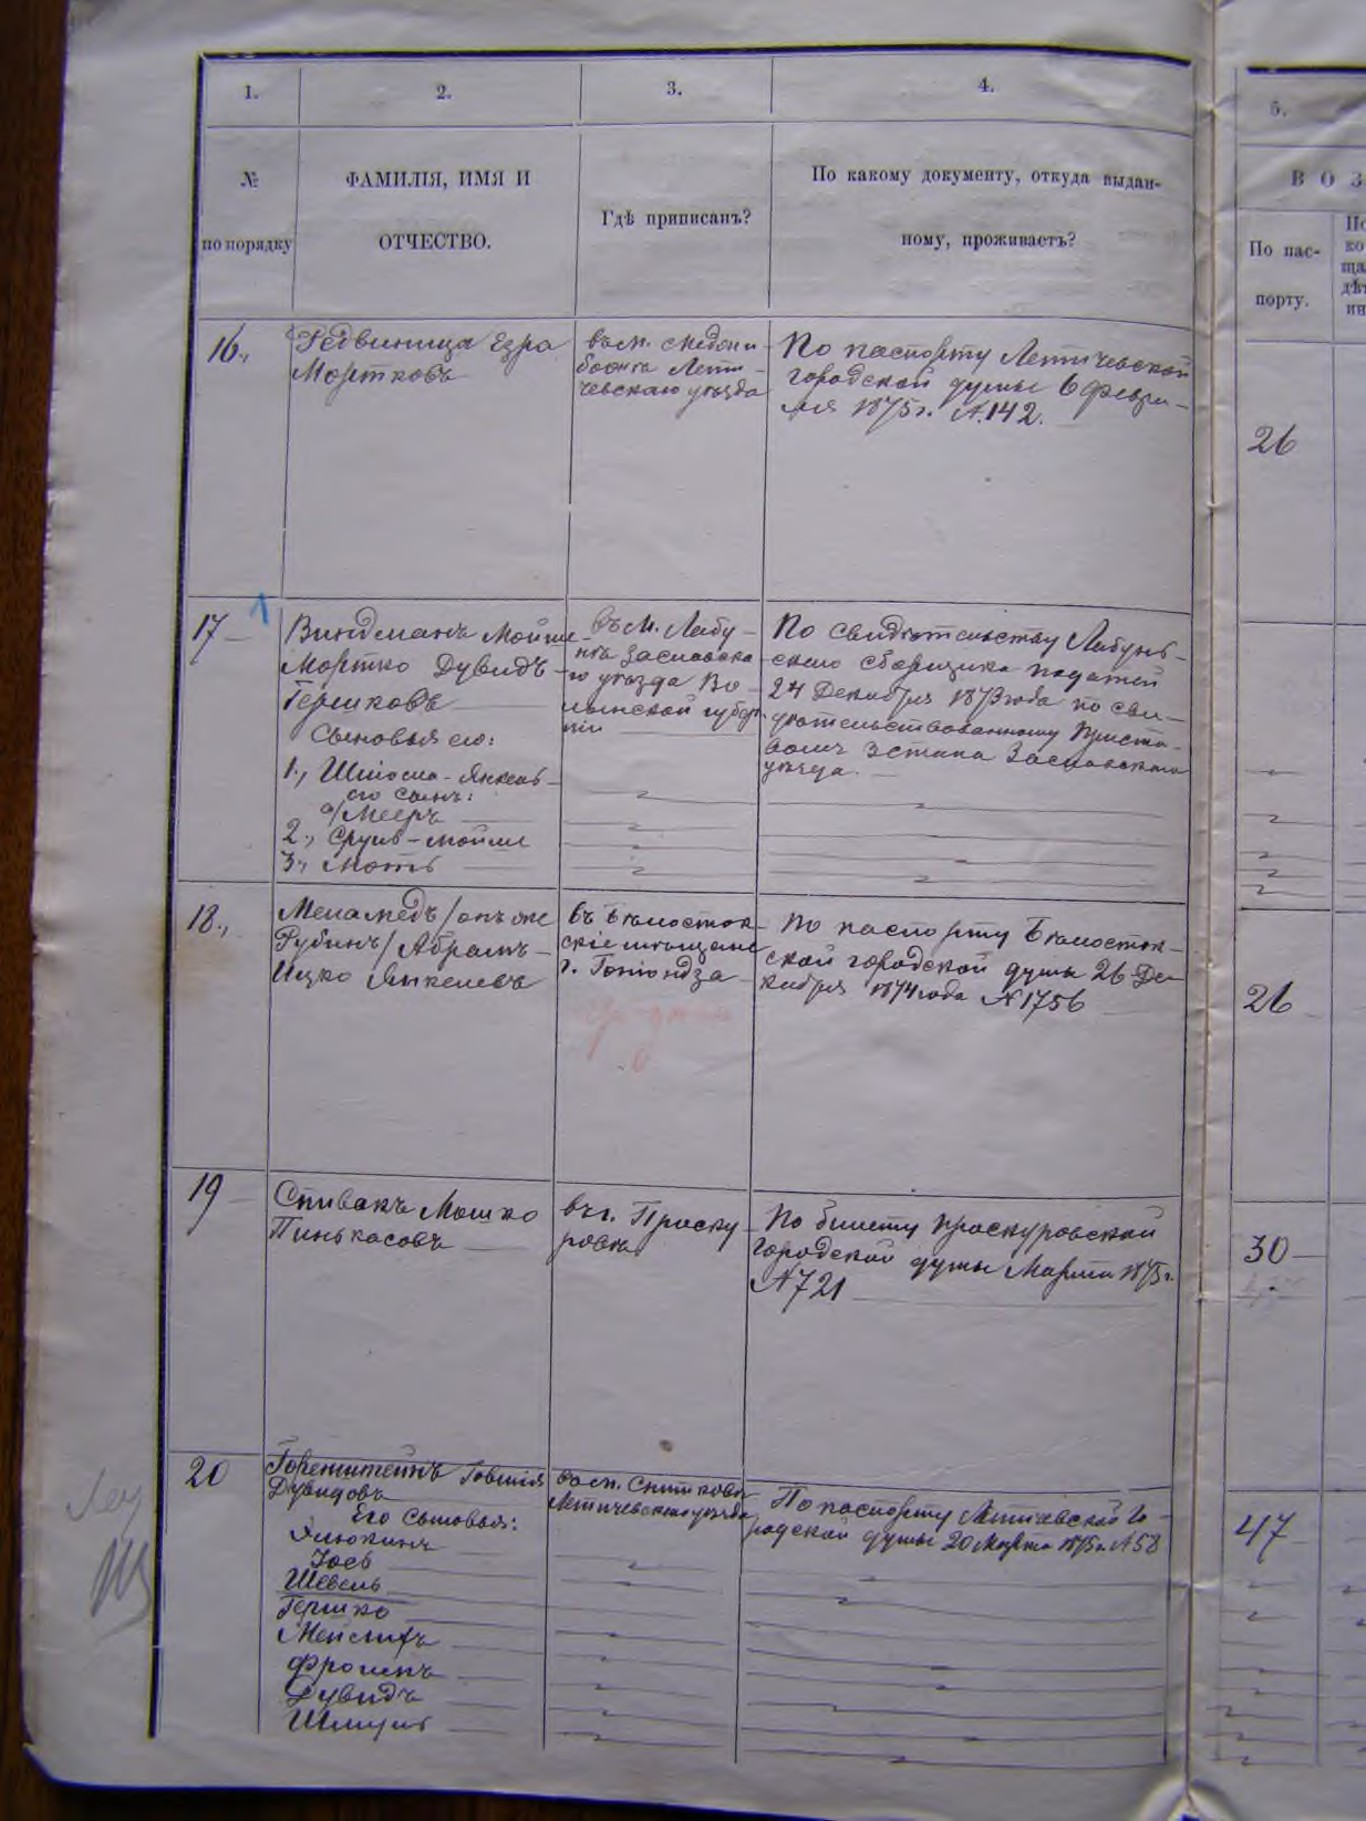 1.
2.
3.
4.
5.
№
по порядку
ФАМИЛІЯ, ИМЯ И
ОТЧЕСТВО.
Гдѣ приписанъ?
По какому документу, откуда выдан-
ному, проживаетъ?
В О З
По пас-
порту.
16.,
Редвиница Езра
Мортковъ
въ м. Меджи
божъ Лети-
чевскаго уѣзда
По паспорту Летичевской
городской думы 6 Февра-
ля 1875 г. №142.
26
17
1
Виндманъ Мойше-
Мортко Дувидъ-
Гершковъ
Сыновья его:
1., Шліома-Янкель-
его сынъ:
а/ Мееръ
2., Сруль-Мойше
3., Моть
въ м. Лабу-
нь Заславска-
го уѣзда Во-
лынской губер-
ніи
По свидѣтельству Лабунь-
скаго сборщика податей
24 Декабря 1873 года по сви-
дѣтельствованному Приста-
вомъ 3 стана Заславскаго
уѣзда.
18.,
Меламедъ /онъ же
Рубинъ/ Абрамъ-
Ицко Янкелевъ
въ Бѣлосток-
скіе мѣщане
г. Гоніондза
По паспорту Бѣлосток-
ской городской думы 26 Де-
кабря 1874 года №1756
26
19
Спивакъ Мошко
Пинькасовъ
въ г. Проску-
ровъ
По билету Проскуровской
городской думы Марта 1875 г.
№721
30
20
Горенштейнъ Говшія
Дувидовъ
Его сыновья:
Элюкинъ
Іосъ
Шевель
Гершко
Мейлихъ
Фроимъ
Дувидъ
Шмуль
въ м. Снитковъ
Летичевскаго уѣзда
По паспорту Летичевской Го-
родской думы 20 Марта 1875 г. №58
47